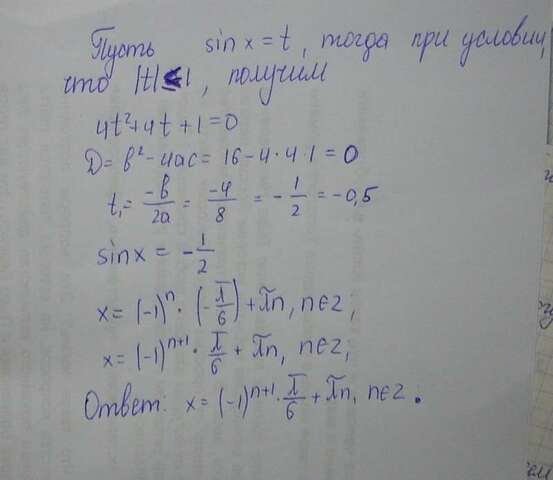 Пусть sin x = t, тогда при условии,
что |t|≤1, получим
4t²+4t+1=0
D=b²-4ac= 16-4·4·1=0
t₁= -b/2a = -4/8 = -1/2 = -0,5
sin x = -1/2
x= (-1)ⁿ· (-π/6)+πn, n∈z;
x= (-1)ⁿ⁺¹· π/6 + πn, n∈z;
Ответ: x= (-1)ⁿ⁺¹·π/6 + πn, n∈z.